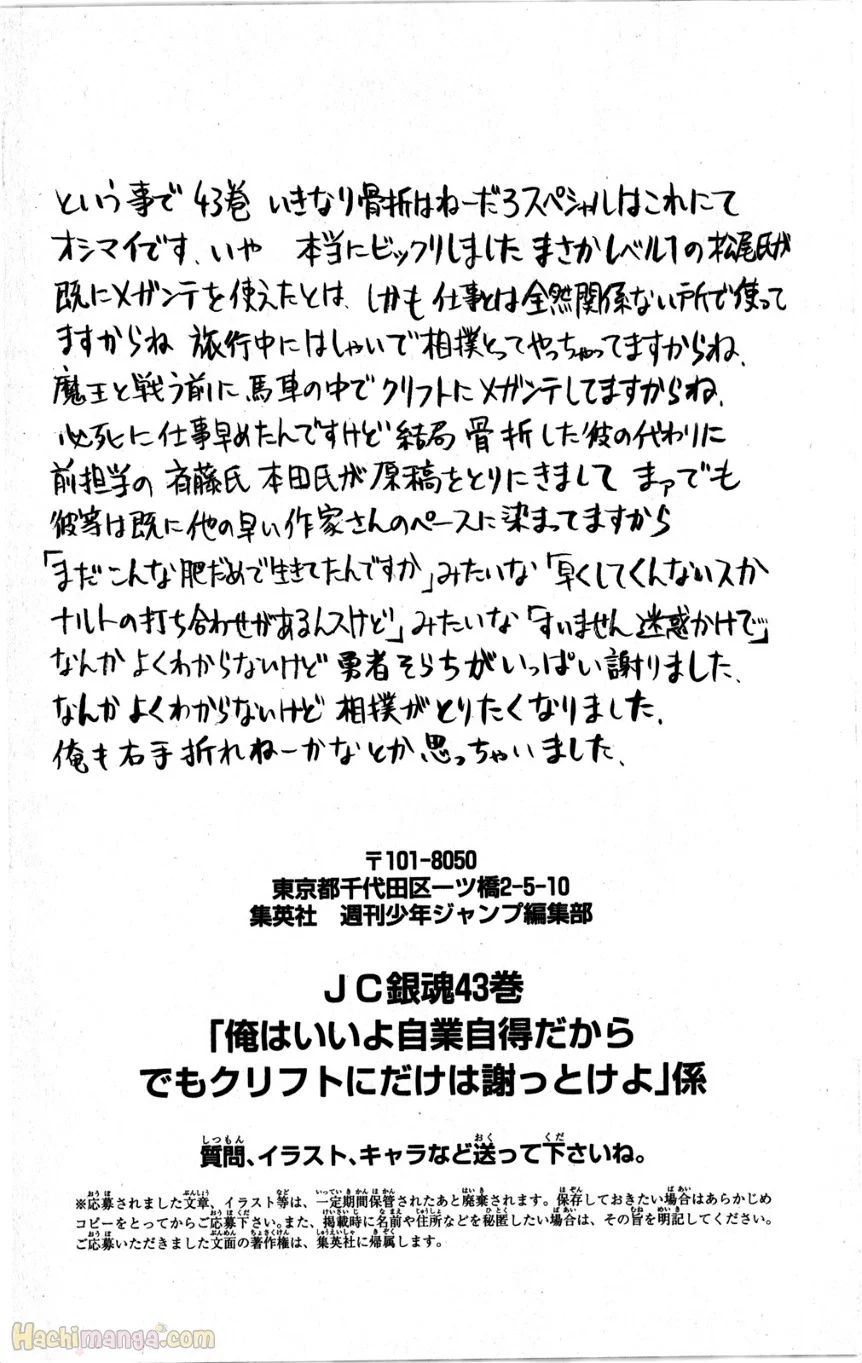 という事で 43巻 いきなり骨折はねーだろスペシャルはこれにて
オシマイです、いや 本当にビックリしました まさかレベル1の松尾氏が
既にメガンテを使えたとは、しかも仕事とは全然関係ない所で使って
ますからね 旅行中にはしゃいで相撲とってやっちゃってますからね、
魔王と戦う前に馬車の中でクリフトにメガンテしてますからね、
必死に仕事早めたんですけど結局 骨折した彼の代わりに
前担当の 斉藤氏 本田氏が原稿をとりにきまして まァでも
彼等は既に他の早い作家さんのペースに染まってますから
「まだこんな肥だめで生きてたんですか」みたいな「早くしてくんないスか
ナルトの打ち合わせがあるんスけど」みたいな「すいません迷惑かけて」
なんかよくわからないけど勇者そらちがいっぱい謝りました、
なんかよくわからないけど相撲がとりたくなりました、
俺も右手折れねーかなとか思っちゃいました、
〒101-8050
東京都千代田区一ツ橋2-5-10
集英社 週刊少年ジャンプ編集部
JC銀魂43巻
「俺はいいよ自業自得だから
でもクリフトにだけは謝っとけよ」係
質問、イラスト、キャラなど送って下さいね。
※応募されました文章、イラスト等は、一定期間保管されたあと廃棄されます。保存しておきたい場合はあらかじめ
コピーをとってからご応募下さい。また、掲載時に名前や住所などを秘匿したい場合は、その旨を明記してください。
ご応募いただきました文面の著作権は、集英社に帰属します。
Hachimanga.com